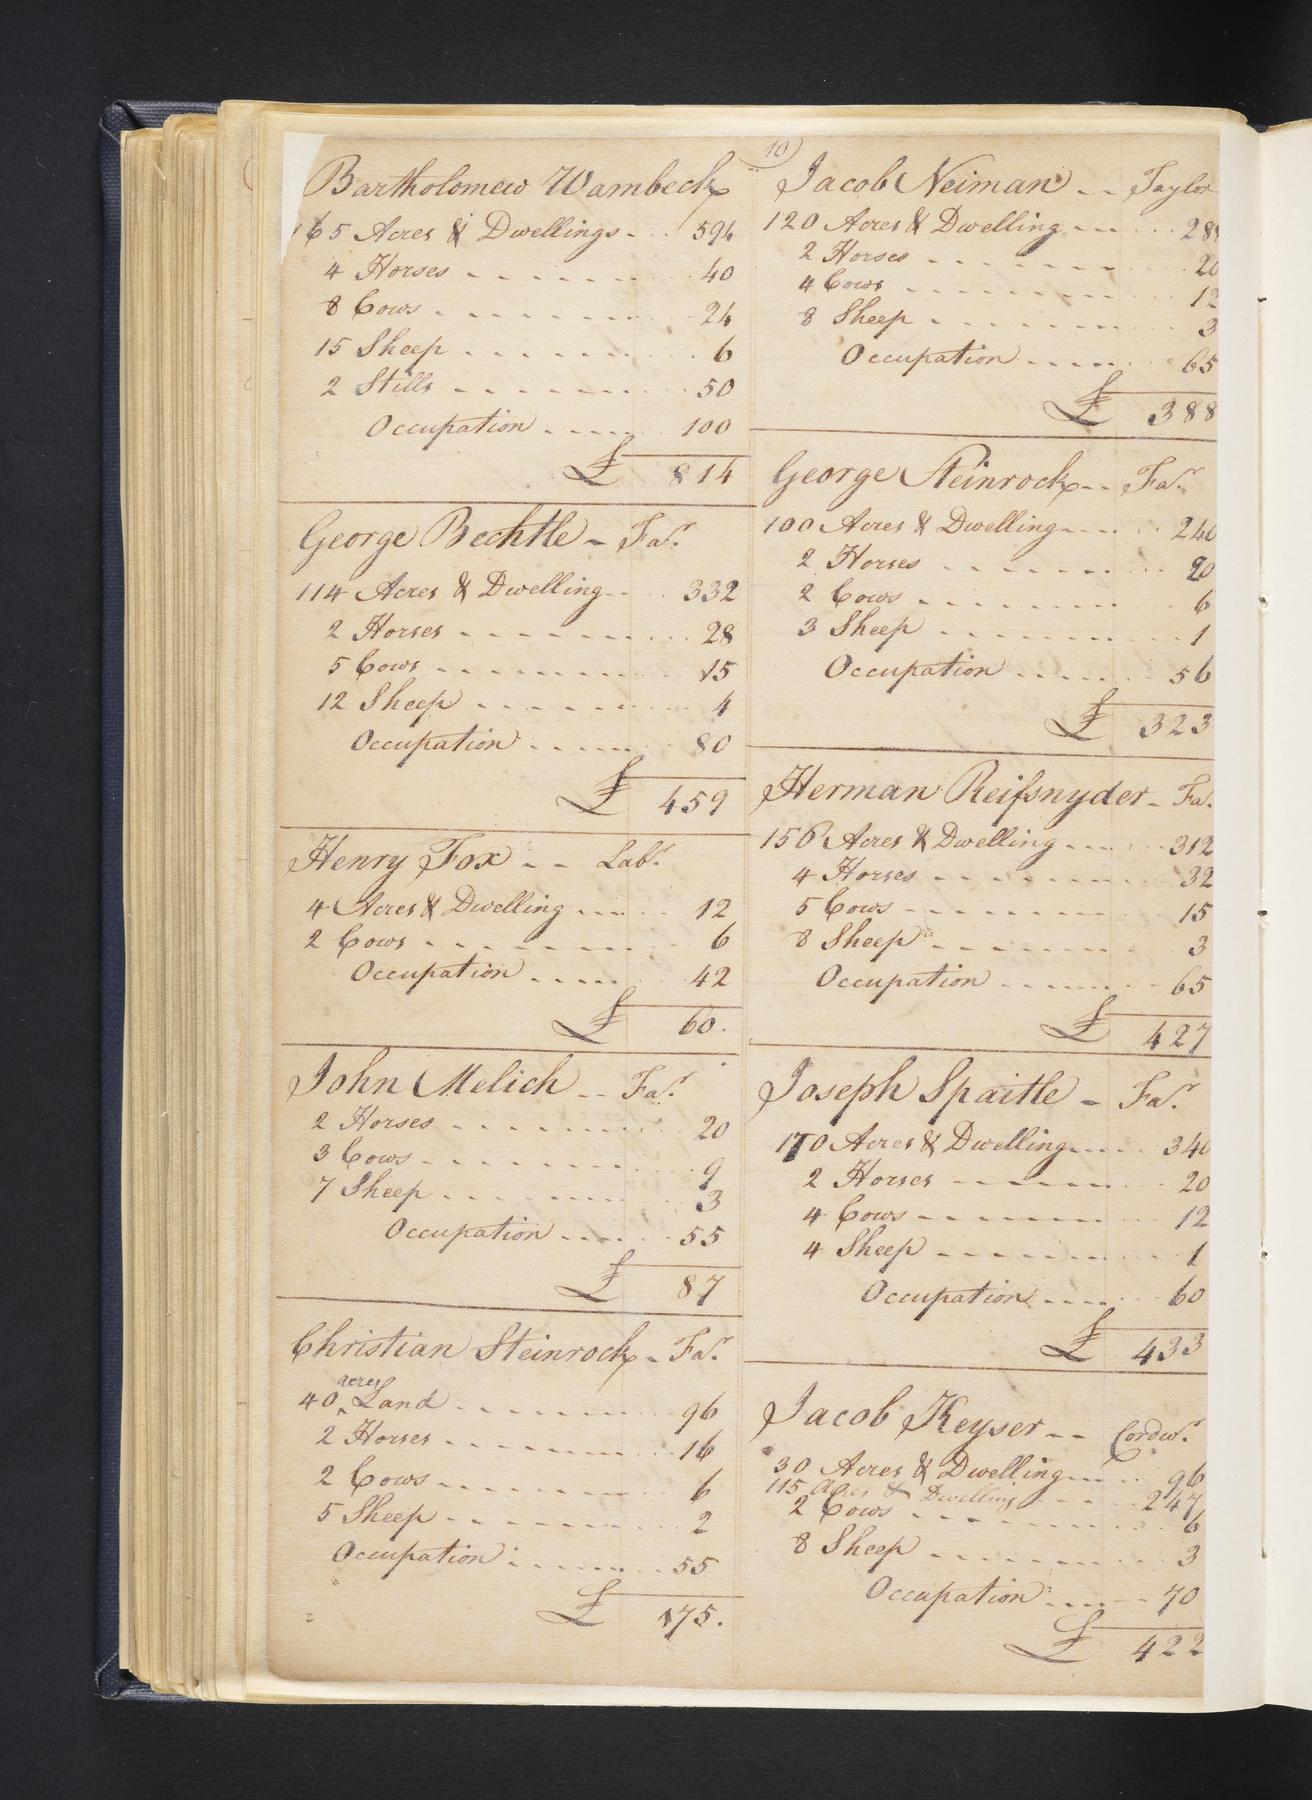 10
Bartholomew Wambeck
165 Acres & Dwellings 594
4 Horses 40
8 Cows 24
15 Sheep 6
2 Stills 50
Occupation 100
£ 814
George Bechtle - Far.
114 Acres & Dwelling 332
2 Horses 28
5 Cows 15
12 Sheep 4
Occupation 80
£ 459
Henry Fox -- Labr.
4 Acres & Dwelling 12
2 Cows 6
Occupation 42
£ 60.
John Melich -- Far.
2 Horses 20
3 Cows 9
7 Sheep 3
Occupation 55
£ 87
Christian Steinrock - Far.
40 acres Land 96
2 Horses 16
2 Cows 6
5 Sheep 2
Occupation 55
£ 175.
Jacob Neiman -- Taylor
120 Acres & Dwelling 288
2 Horses 20
4 Cows 12
8 Sheep 3
Occupation 65
£ 388
George Steinrock -- Far.
100 Acres & Dwelling 240
2 Horses 20
2 Cows 6
3 Sheep 1
Occupation 56
£ 323
Herman Reifsnyder - Fa.
156 Acres & Dwelling 312
4 Horses 32
5 Cows 15
8 Sheep 3
Occupation 65
£ 427
Joseph Spaitle - Far.
170 Acres & Dwelling 340
2 Horses 20
4 Cows 12
4 Sheep 1
Occupation 60
£ 433
Jacob Keyser -- Cordwr.
30 Acres & Dwelling 96
115 Acres & Dwelling 247
2 Cows 6
8 Sheep 3
Occupation 70
£ 422